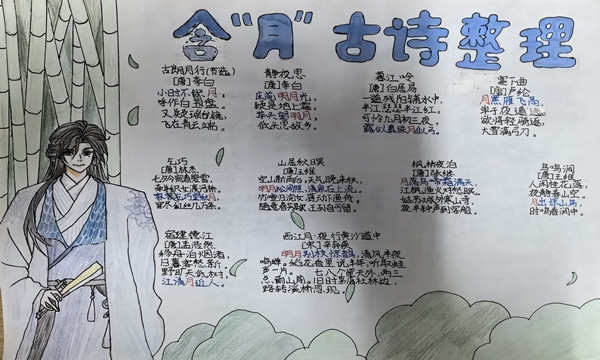 含“月”古诗整理
古朗月行(节选)
[唐]李白
小时不识月,
呼作白玉盘。
又疑瑶台镜,
飞在青云端。
静夜思
[唐]李白
床前明月光,
疑是地上霜。
举头望明月,
低头思故乡。
暮江吟
[唐]白居易
一道残阳铺水中,
半江瑟瑟半江红。
可怜九月初三夜,
露似真珠月似弓。
塞下曲
[唐]卢纶
月黑雁飞高,
单于夜遁逃。
欲将轻骑逐,
大雪满弓刀。
乞巧
[唐]林杰
七夕今宵看碧霄,
牵牛织女渡河桥。
家家乞巧望秋月,
穿尽红丝几万条。
山居秋暝
[唐]王维
空山新雨后,天气晚来秋。
明月松间照,清泉石上流。
竹喧归浣女,莲动下渔舟。
随意春芳歇,王孙自可留。
枫桥夜泊
[唐]张继
月落乌啼霜满天,
江枫渔火对愁眠。
姑苏城外寒山寺,
夜半钟声到客船。
鸟鸣涧
[唐]王维
人闲桂花落,
夜静春山空。
月出惊山鸟,
时鸣春涧中。
宿建德江
[唐]孟浩然
移舟泊烟渚,
日暮客愁新。
野旷天低树,
江清月近人。
西江月·夜行黄沙道中
[宋]辛弃疾
明月别枝惊鹊,清风半夜
鸣蝉。稻花香里说丰年,听取蛙
声一片。 七八个星天外,两三
点雨山前。旧时茅店社林边,
路转溪桥忽见。